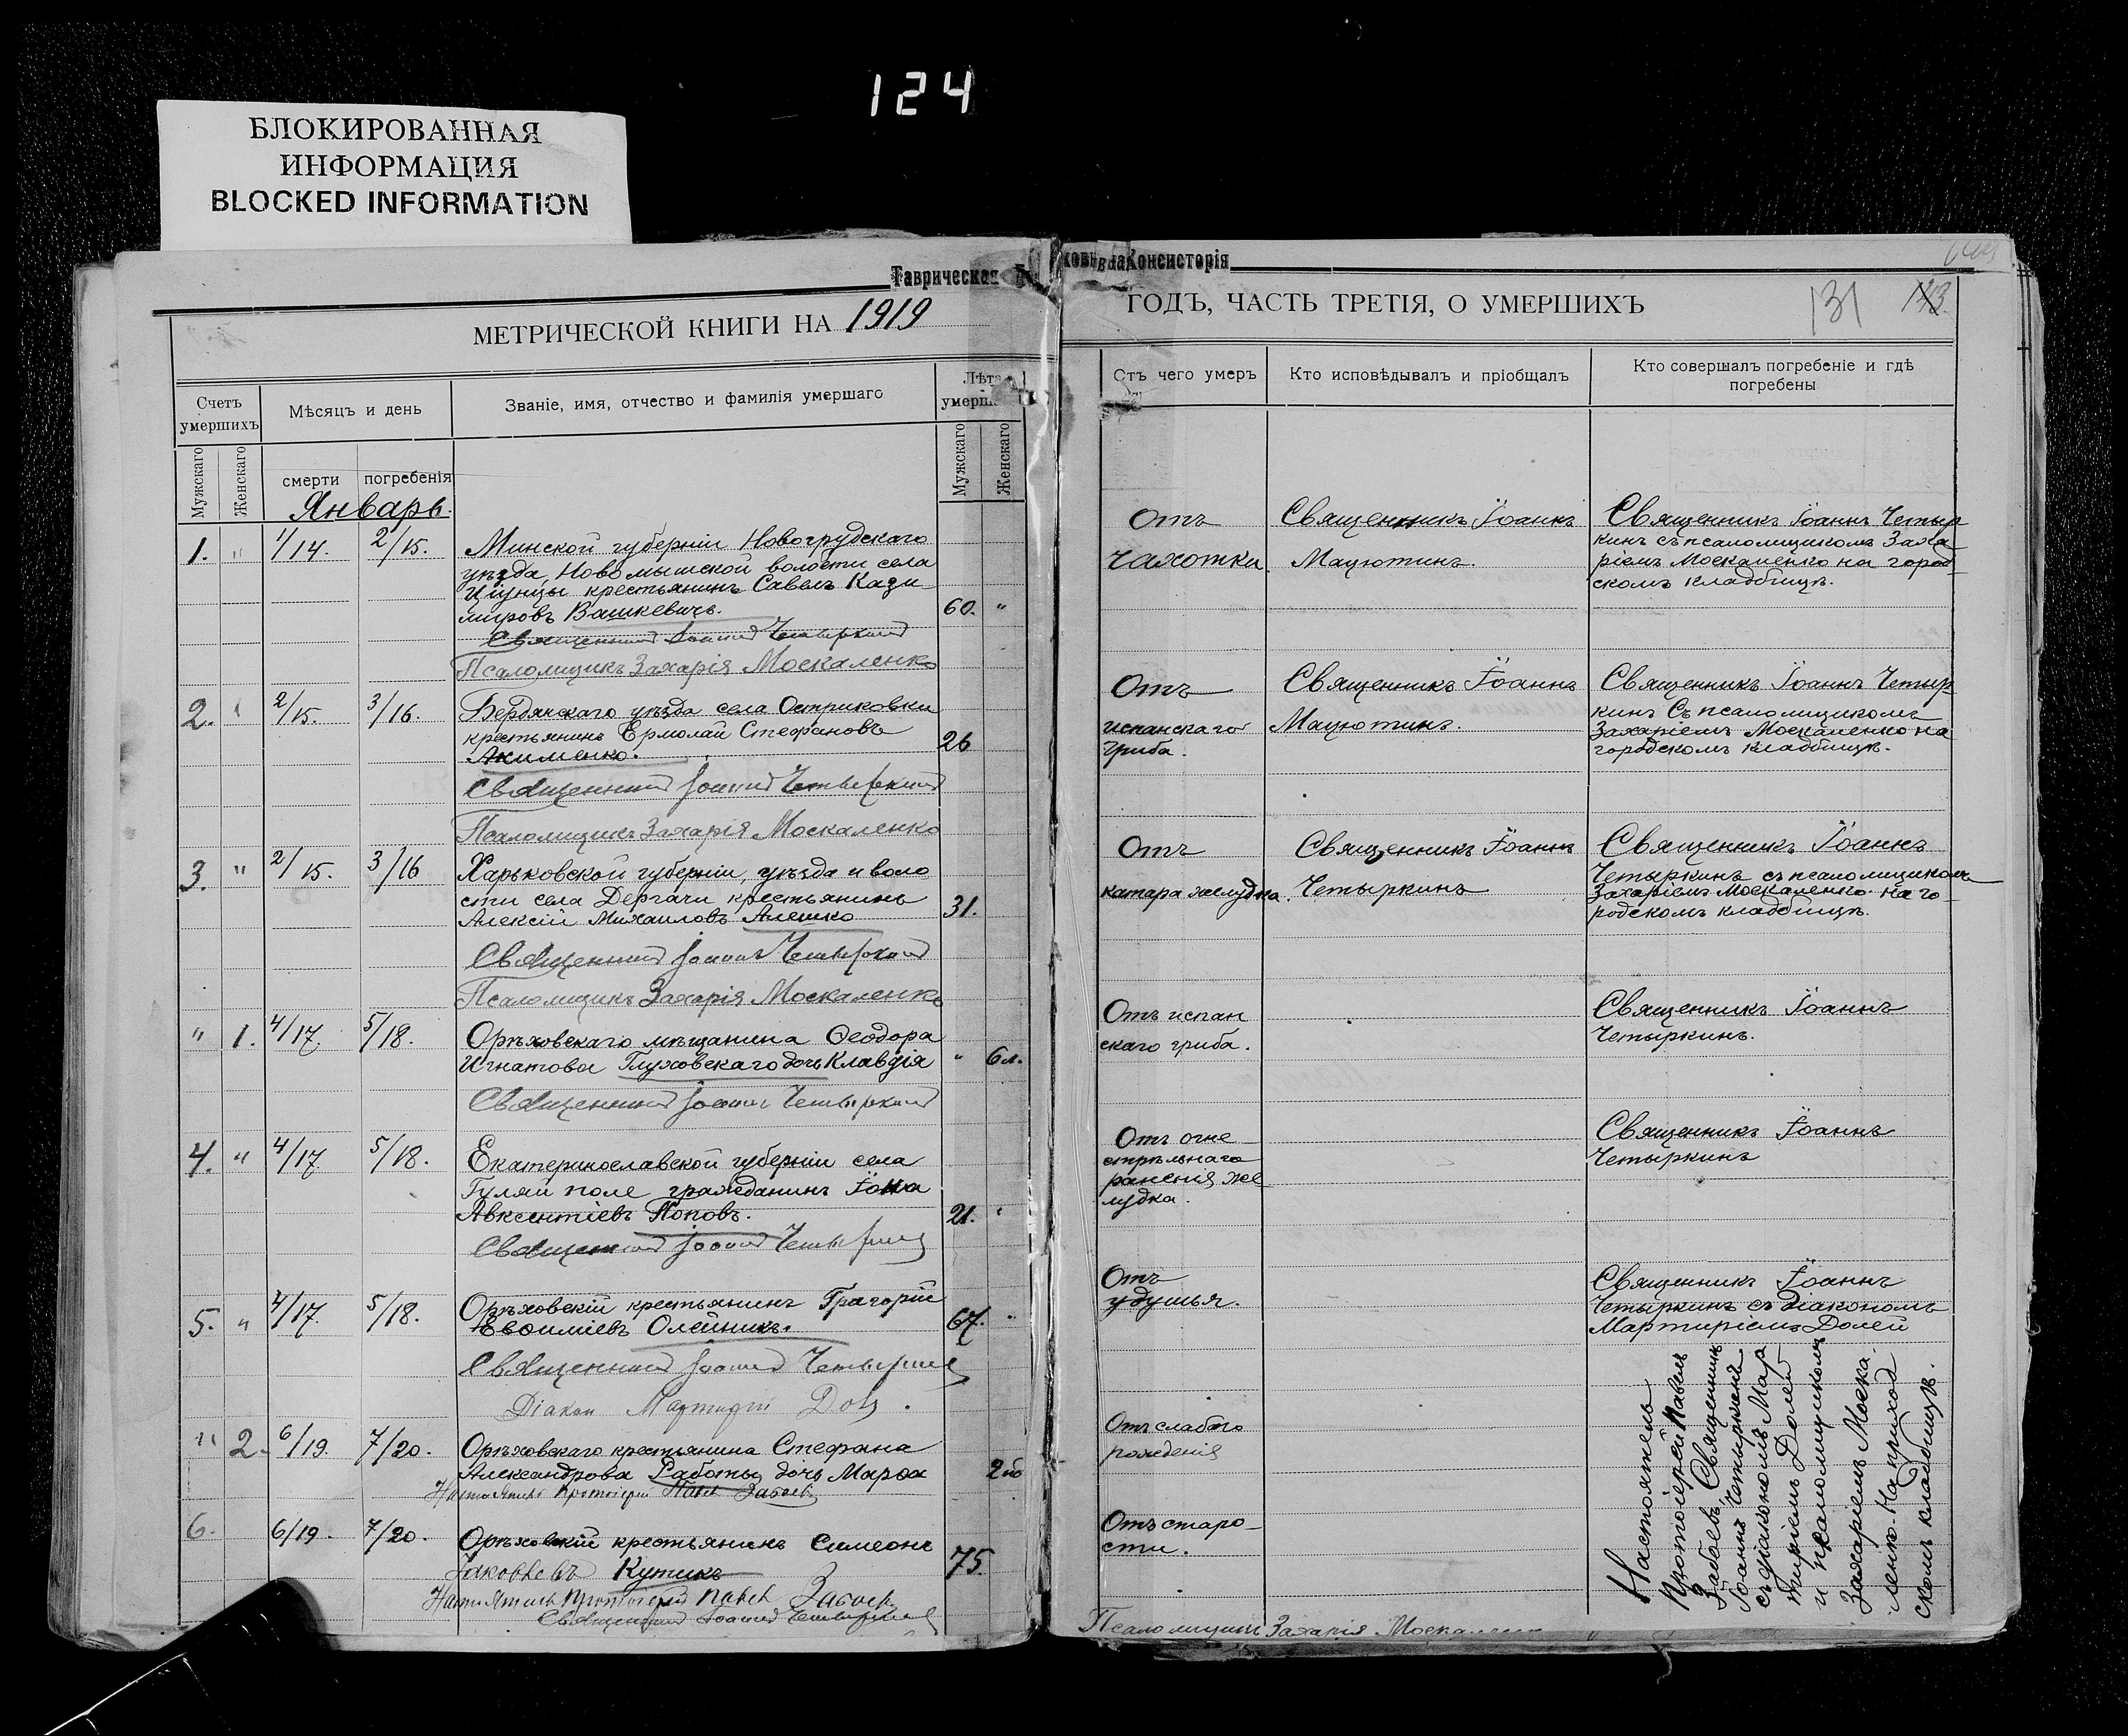 124
БЛОКИРОВАННАЯ
ИНФОРМАЦИЯ
BLOCKED INFORMATION
Таврическая
Консисторія
МЕТРИЧЕСКОЙ КНИГИ НА 1919
ГОДЪ, ЧАСТЬ ТРЕТІЯ, О УМЕРШИХЪ
131
Счетъ умершихъ
Мѣсяцъ и день
Званіе, имя, отчество и фамилія умершаго
Лѣта
Мужскаго
Женскаго
смерти
погребенія
Мужскаго
Женскаго
Отъ чего умеръ
Кто исповѣдывалъ и пріобщалъ
Кто совершалъ погребеніе и гдѣ
погребены
Январь.
1. " 1/14. 2/15.
Минской губерніи Новогрудскаго
уѣзда, Новомышской волости села
крестьянинъ Савелъ Кази
міровъ Вашкевичъ.
60. "
Священникъ Іоаннъ Четыркинъ
Псаломщикъ Захарія Москаленко
Отъ
чахотки.
Священникъ Іоаннъ
Мацютинъ.
Священникъ Іоаннъ Четыр
кинъ съ псаломщикомъ Заха
ріемъ Москаленко на город
скомъ кладбищѣ.
2. " 2/15. 3/16.
Бердянскаго уѣзда села Остриковки
крестьянинъ Ермолай Стефановъ
Акименко.
26
Священникъ Іоаннъ Четыркинъ
Псаломщикъ Захарія Москаленко
Отъ
испанскаго
гриба.
Священникъ Іоаннъ
Мацютинъ.
Священникъ Іоаннъ Четыр
кинъ съ псаломщикомъ
Захаріемъ Москаленко на
городскомъ кладбищѣ.
3. " 2/15. 3/16
Харьковской губерніи, уѣзда и воло
сти села Дергачи крестьянинъ
Алексій Михаиловъ Алешко
31.
Священникъ Іоаннъ Четыркинъ
Псаломщикъ Захарія Москаленко
Отъ
катара желудка.
Священникъ Іоаннъ
Четыркинъ
Священникъ Іоаннъ
Четыркинъ съ псаломщикомъ
Захаріемъ Москаленко на го-
родскомъ кладбищѣ.
" 1. 4/17. 5/18.
Орѣховскаго мѣщанина Ѳеодора
Игнатова Глуховскаго дочь Клавдія
" 6 л.
Священникъ Іоаннъ Четыркинъ
Отъ испан
скаго гриба.
Священникъ Іоаннъ
Четыркинъ.
4. " 4/17 5/18.
Екатеринославской губерніи села
Гуляй поле гражданинъ Іона
Авксентіевъ Поповъ.
21. "
Священникъ Іоаннъ Четыркинъ
Отъ огне
стрѣльнаго
раненія же
лудка.
Священникъ Іоаннъ
Четыркинъ
5. " 4/17. 5/18.
Орѣховскій крестьянинъ Грагорій
Евѳиміевъ Олейникъ.
67. "
Священникъ Іоаннъ Четыркинъ
Діаконъ Мартирій
Отъ
удушья.
Священникъ Іоаннъ
Четыркинъ съ діакономъ
Мартиріемъ Долей
" 2. 6/19. 7/20.
Орѣховскаго крестьянина Стефана
Александрова Работы дочь Марѳа
Настоятель Протоіерей Павелъ Забаевъ
Отъ слабаго
рожденія
6. 6/19. 7/20.
Орѣховскій крестьянинъ Симеонъ
Іаковлевъ Кутикъ
75.
Настоятель Протоіерей Павелъ Забаевъ
Священникъ Іоаннъ Четыркинъ
Отъ старо-
сти.
Псаломщикъ Захарія Москаленко
Настоятель
Протоіерей Павелъ
Забаевъ, Священникъ
Іоаннъ Четыркинъ
съ діакономъ Мар
тиріемъ Долей
и псаломщикомъ
Захаріемъ Моска
ленко. На приход
скомъ кладбищѣ.